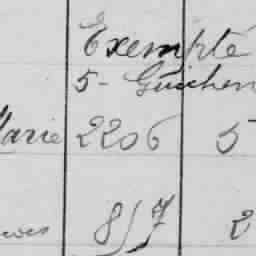 Exempté
5 - Guichen
Marie 2206 5
857 2